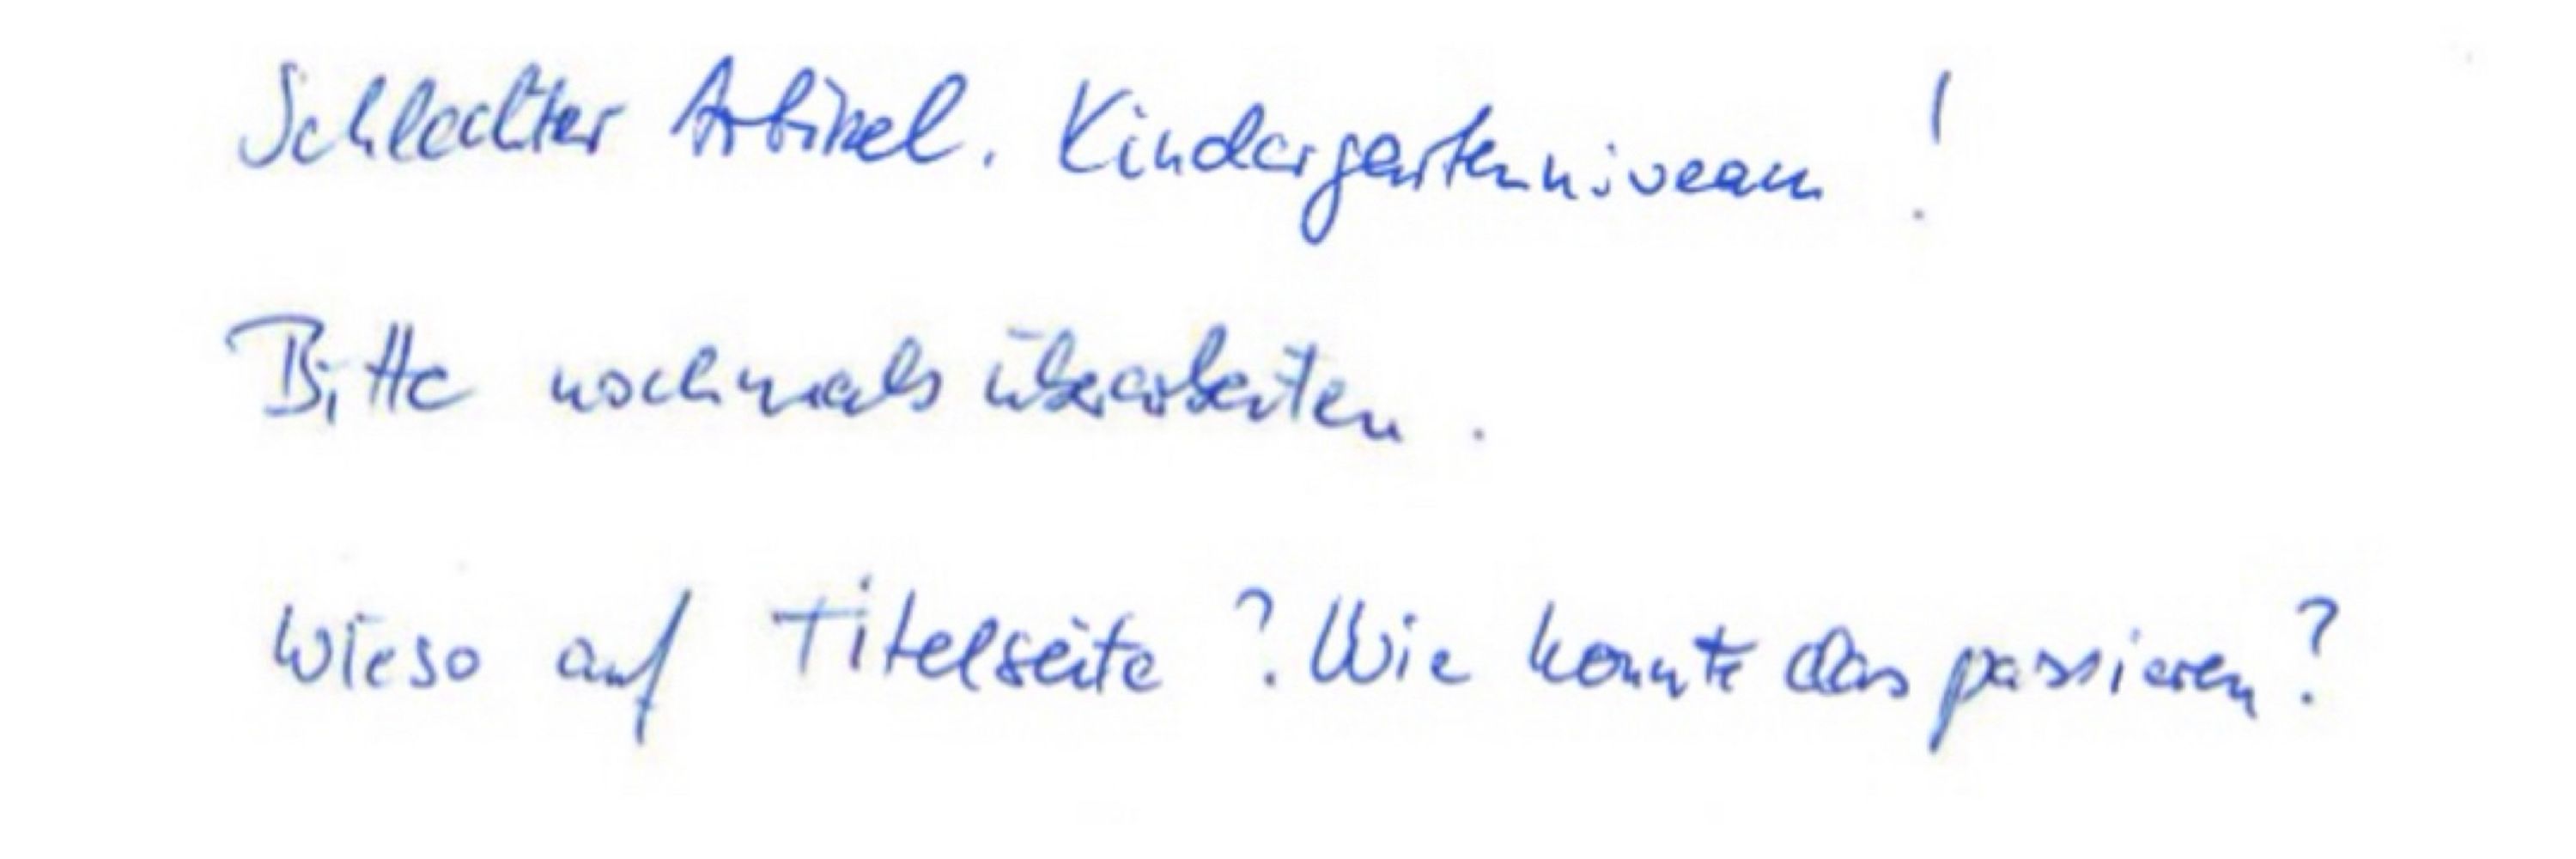 Schlechter Artikel. Kindergartenniveau!
Bitte nochmals überarbeiten.
Wieso auf Titelseite? Wie konnte das passieren?